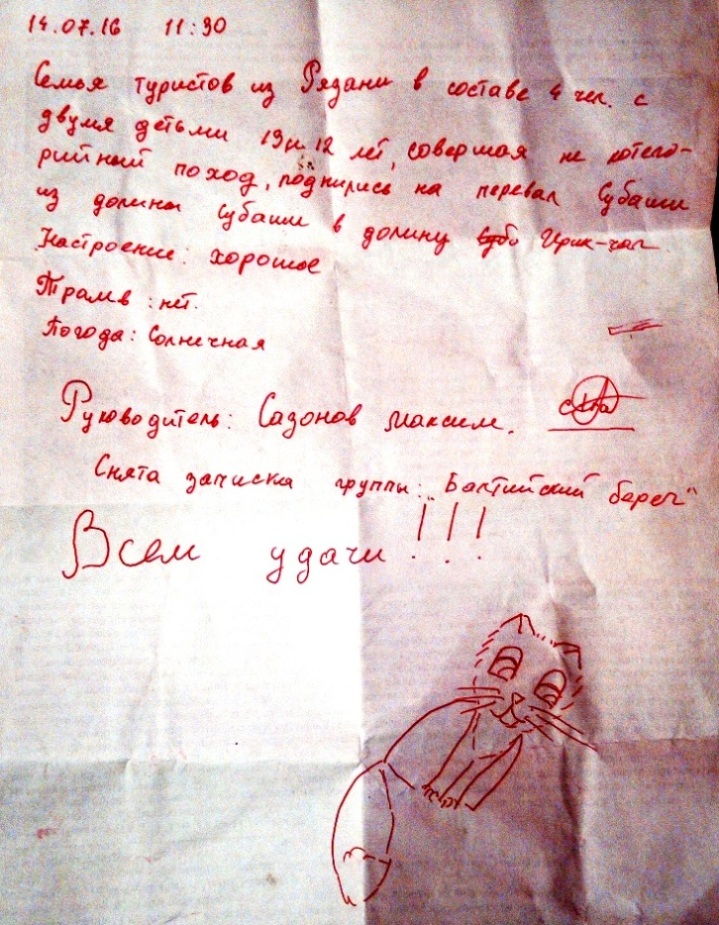 14.07.16 11:30
Семья туристов из Рязани в составе 4 чел. с
двумя детьми 19 и 12 лет, совершая не котего-
рийный поход, поднялись на перевал Субаши
из долины Субаши в долину Ирик-чат
Настроение: хорошее
Трамв: нет.
Погода: Солнечная
Руководитель: Сазонов Максим.
Снята записка группы: „Балтийский берег"
Всем удачи!!!